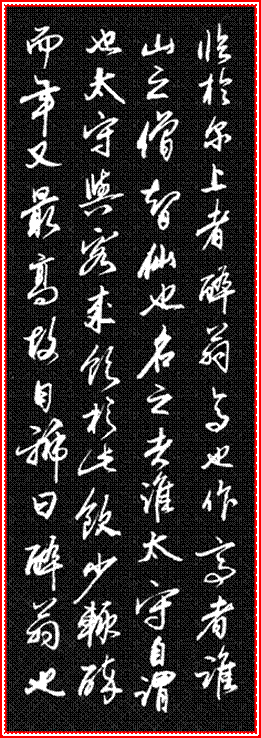 臨於泉上者醉翁亭也作亭者誰
山之僧智仙也名之者誰太守自謂
也太守與客來飲於此飲少輒醉
而年又最高故自號曰醉翁也